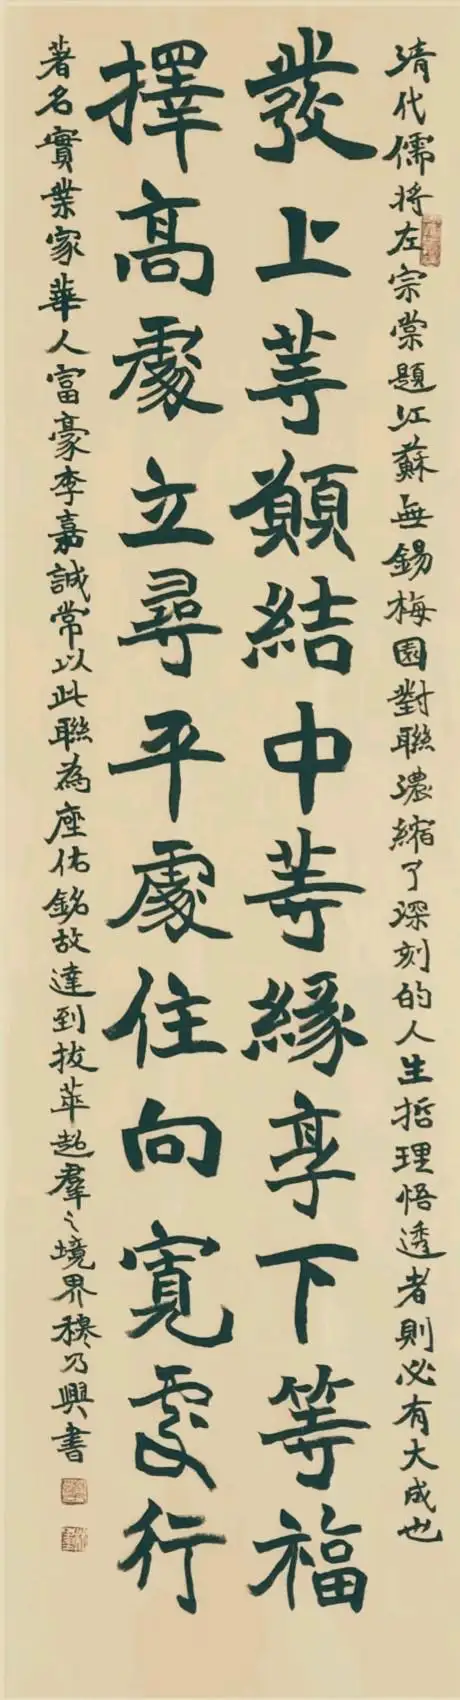 清代儒将左宗棠題江蘇無錫梅園對聯濃縮了深刻的人生哲理悟透者則必有大成也
發上等願結中等緣享下等福
擇高處立尋平處住向寬處行
著名實業家華人富豪李嘉誠常以此聯為座佑銘故達到拔萃超羣之境界穆乃興書